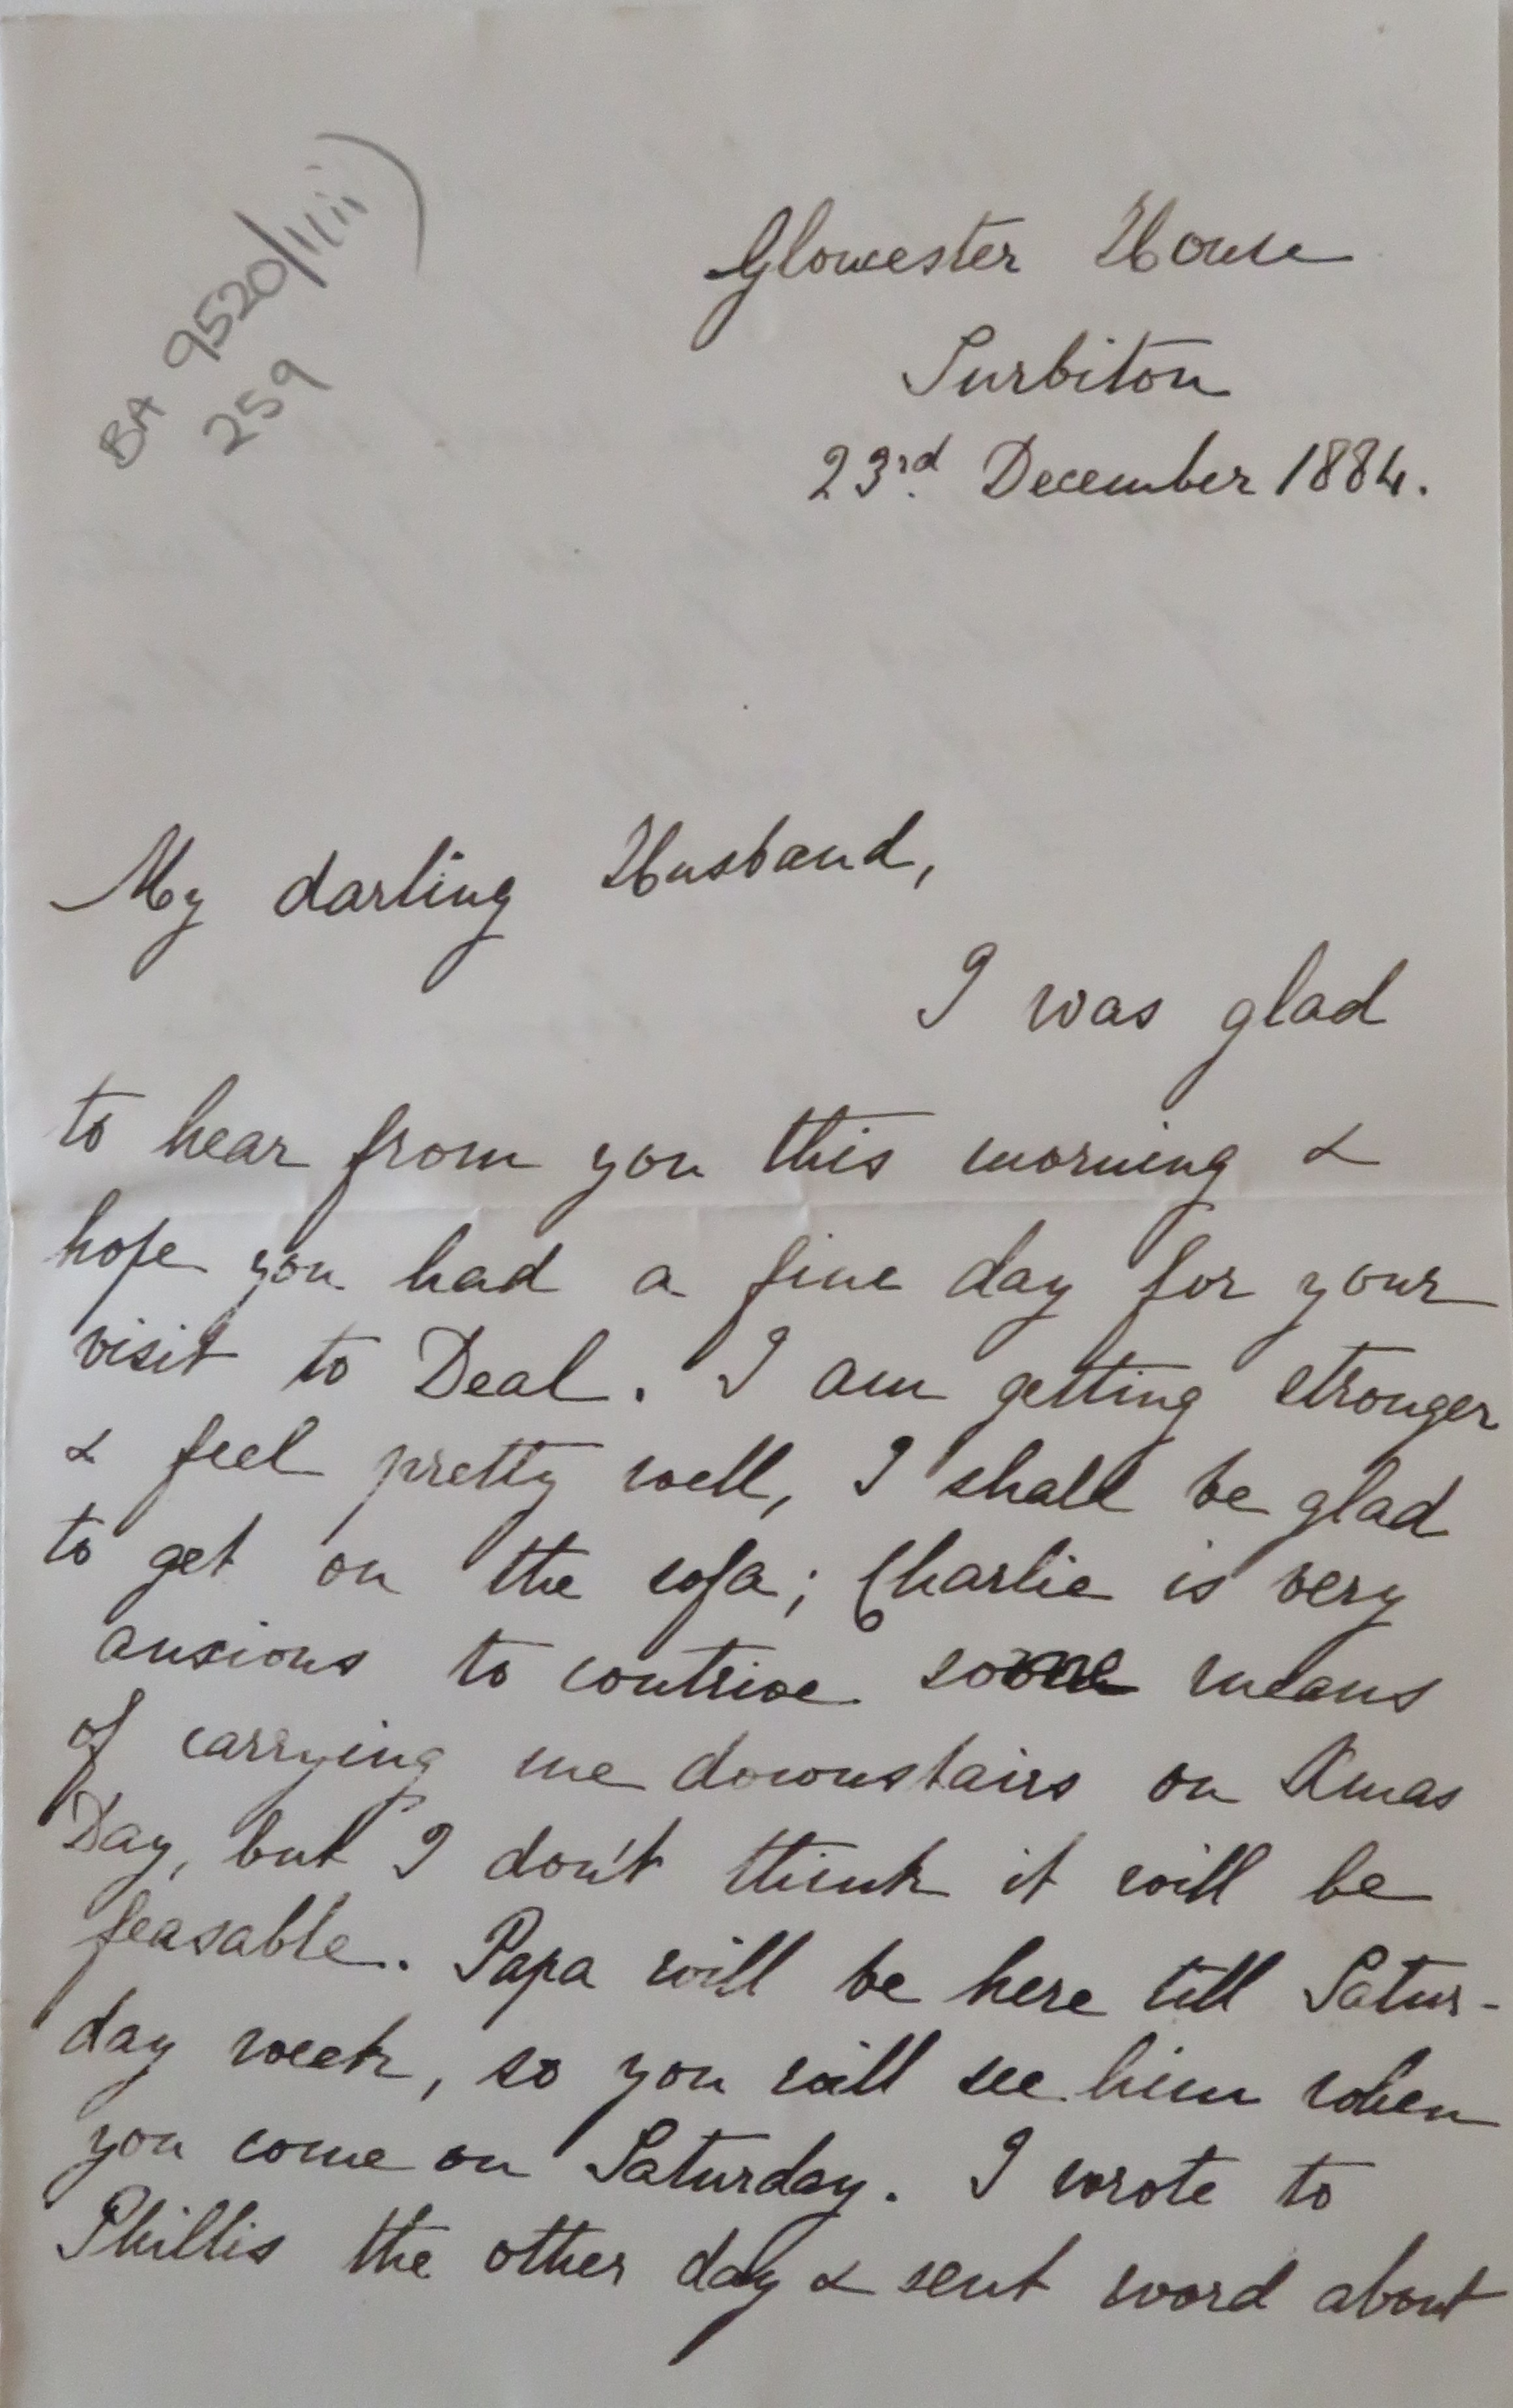 BA 9520/1(iii)
259
Gloucester House
Surbiton
23rd December 1884.
My darling Husband,
I was glad
to hear from you this morning &
hope you had a fine day for your
visit to Deal. I am getting stronger
& feel pretty well, I shall be glad
to get on the sofa; Charlie is very
anxious to contrive some means
of carrying me downstairs on Xmas
Day, but I don't think it will be
feasable. Papa will be here till Satur-
day week, so you will see him when
you come on Saturday. I wrote to
Phillis the other day & sent word about